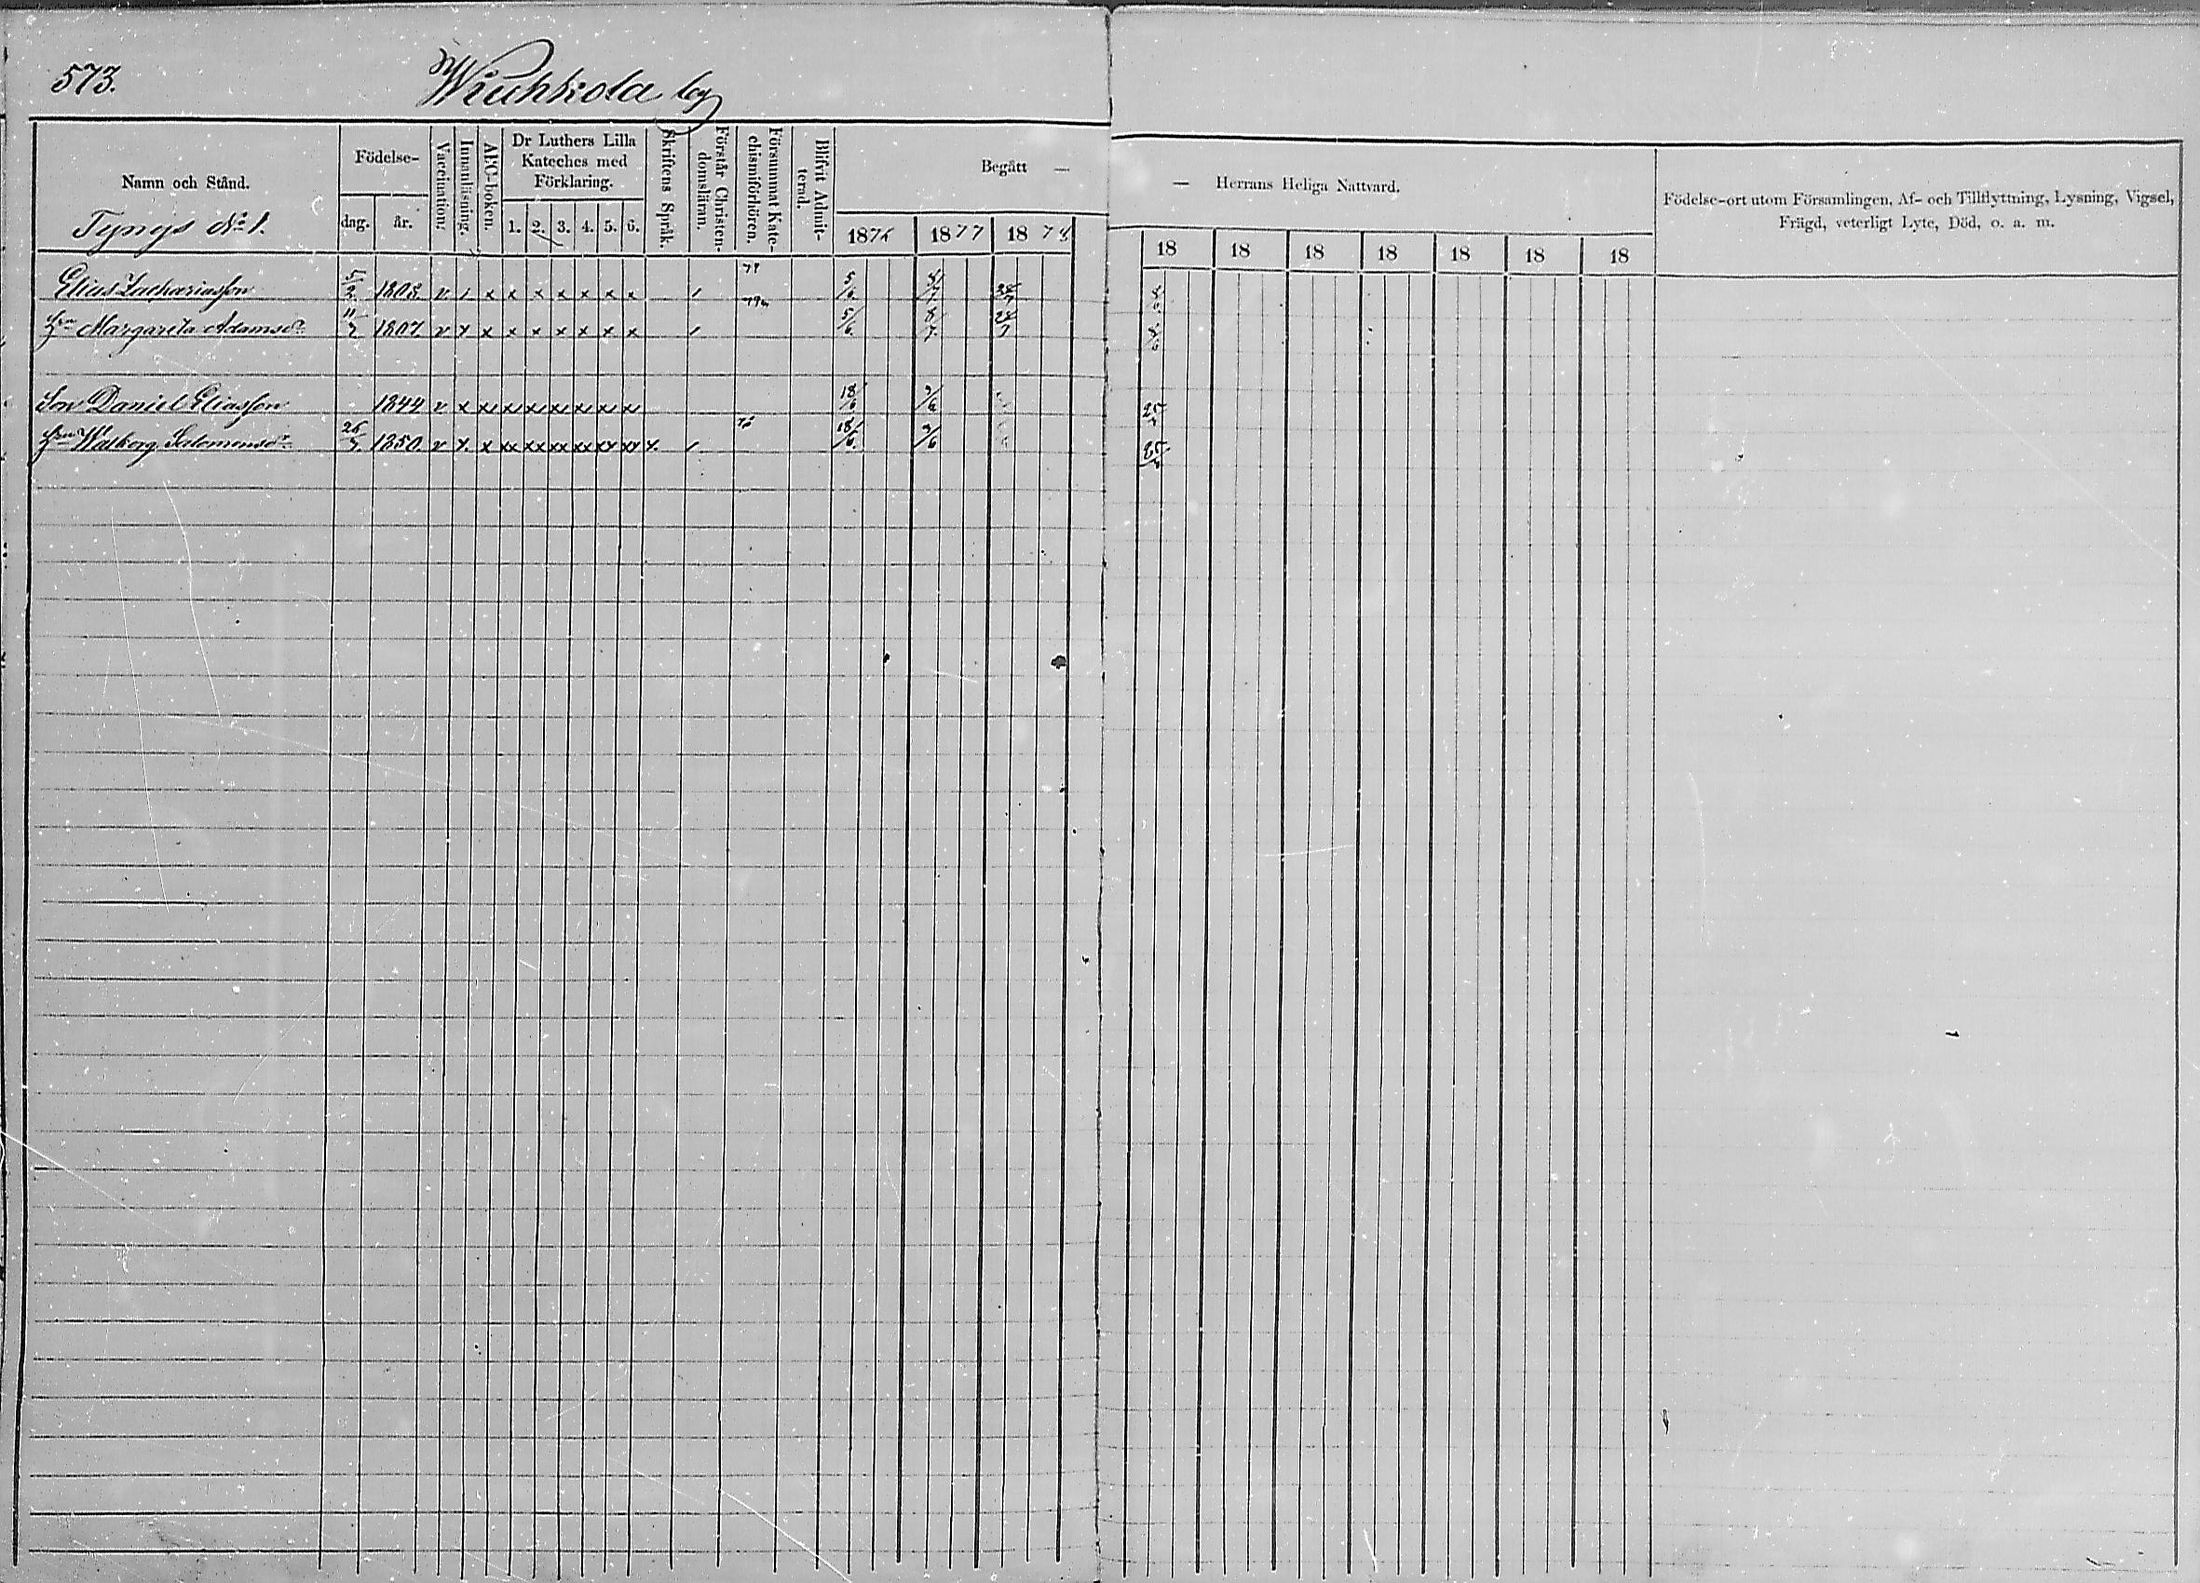 573.
Wiuhkola by
Namn och Stånd.
Födelse-
dag. år.
Vaccination.
Innanläsning.
ABC-boken.
Dr Luthers Lilla
Kateches med
Förklaring.
1. 2. 3. 4. 5. 6.
Skriftens Språk.
Förstår Christen-
domsläran.
Försummat Kate-
chismiförhören.
Blifvit Admit-
terad.
Begått —
1876 1877 1878
— Herrans Heliga Nattvard.
18 18 18 18 18 18 18
Födelse-ort utom Församlingen, Af- och Tillflyttning, Lysning, Vigsel,
Frägd, veterligt Lyte, Död, o. a. m.
Tynys No 1.
Elias Zachariasson 5/2 1808 v x x x x x x x 5/6
Hru Margareta Adamsdr 11/7 1807 v x x x x x x x x 5/6 8/7 28/7
Son Daniel Eliasson 1844 v x x x x x x x x 18/6 3/6 25
Hru Walborg Salomonsdr 26/7 1850 v x x xx xx xx xx xx xx x 18/6 3/6 25